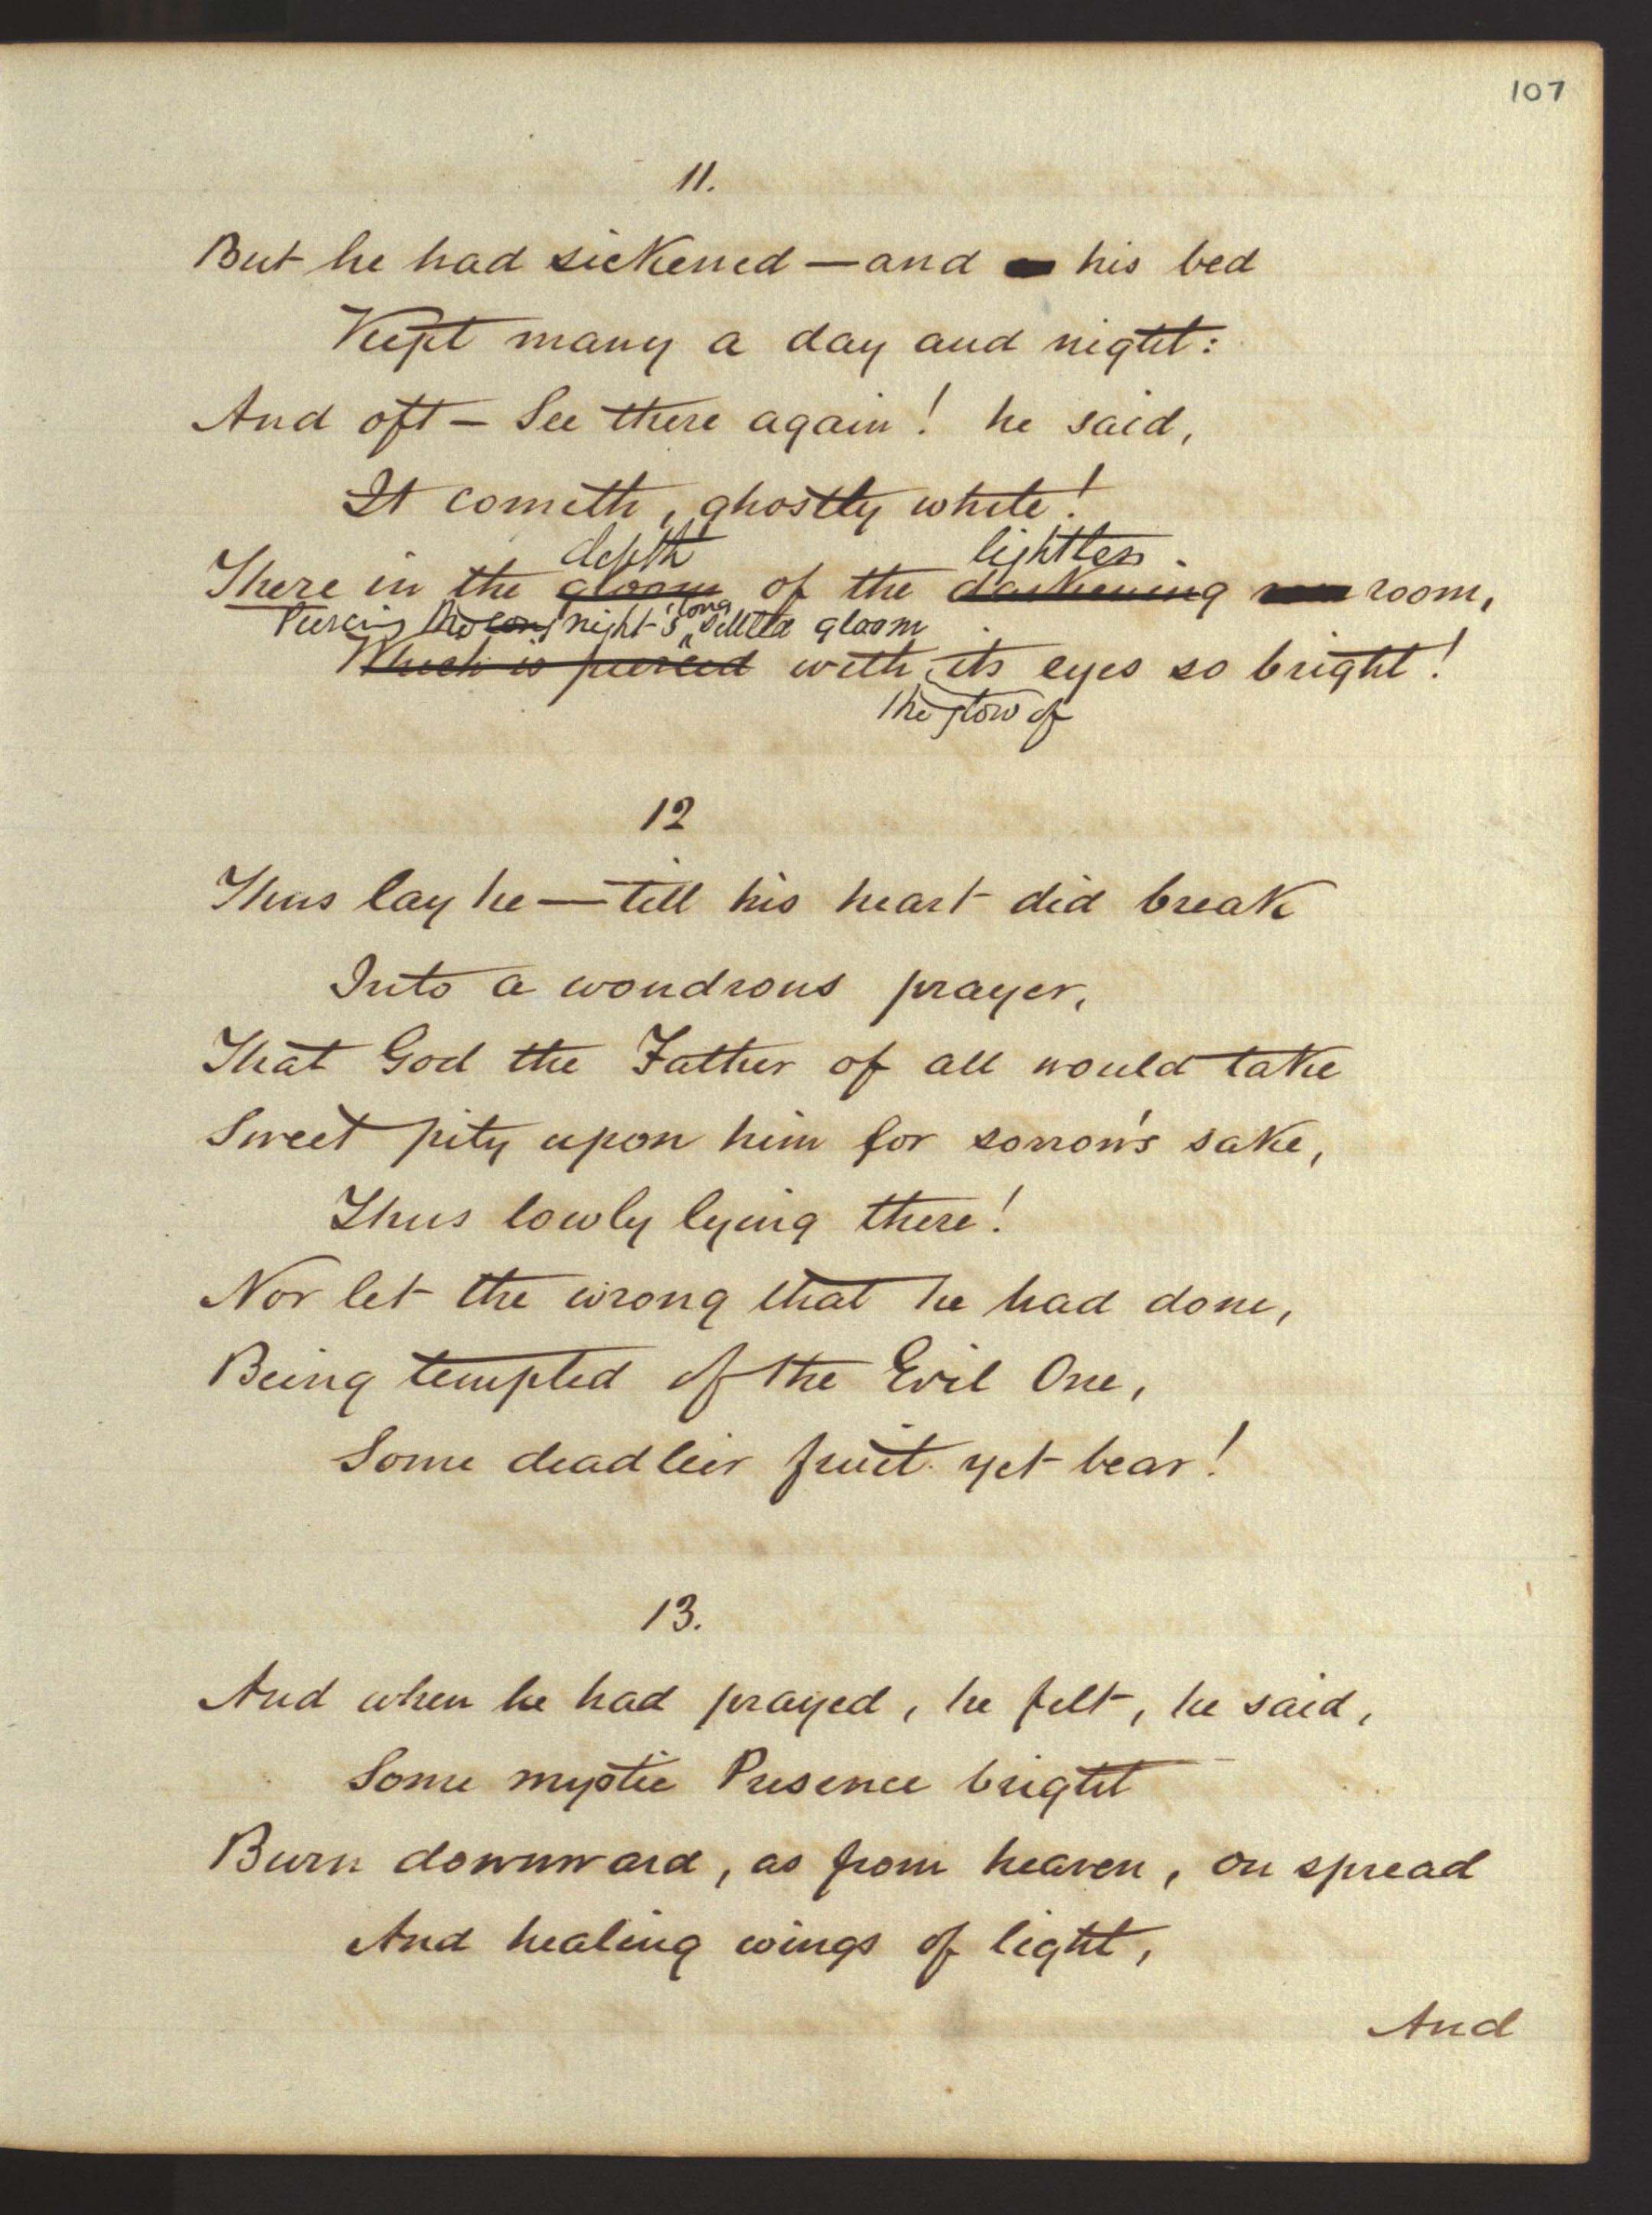 107
11.
But he had sickened — and his bed
Kept many a day and night:
And oft — See there again! he said,
It cometh, ghostly white!
depth lightless
There in the gloom of the darkening room,
Piercing the long night's long gloom
Which is pierced with its eyes so bright!
the glow of
12
Thus lay he — till his heart did break
Into a wondrous prayer,
That God the Father of all would take
Sweet pity upon him for sorrow's sake,
Thus lowly lying there!
Nor let the wrong that he had done,
Being tempted of the Evil One,
Some deadlier fruit yet bear!
13.
And when he had prayed, he felt, he said,
Some mystic Presence bright
Burn downward, as from heaven, on spread
And healing wings of light,
And